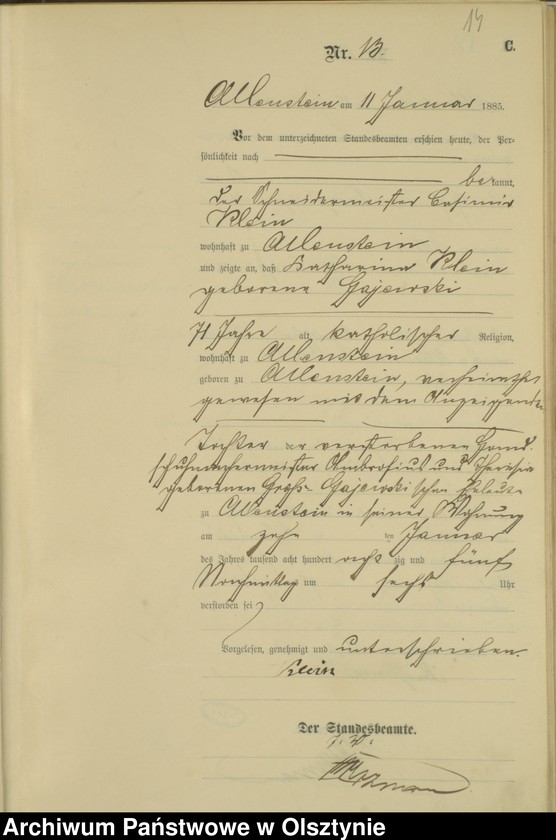 14
Nr. 13.
C.
Allenstein am 11 Januar 1885.
Vor dem unterzeichneten Standesbeamten erschien heute, der Per-
sönlichkeit nach
bekannt,
der Schneidermeister Casimir
Klein
wohnhaft zu Allenstein
und zeigte an, daß Katharina Klein
geborene Gajewski
71 Jahre alt, katholischer Religion,
wohnhaft zu Allenstein
geboren zu Allenstein, verheirathet
gewesen mit dem Anzeigenden
Tochter der verstorbenen Hand-
schuhmachermeister Ambrosius und Theresia
geborenen Gajewskischen Eheleute
zu Allenstein in seiner Wohnung
am zehn ten Januar
des Jahres tausend acht hundert acht zig und fünf
Nachmittag um sechs Uhr
verstorben sei
Vorgelesen, genehmigt und unterschrieben.
Klein
Der Standesbeamte.
Archiwum Państwowe w Olsztynie